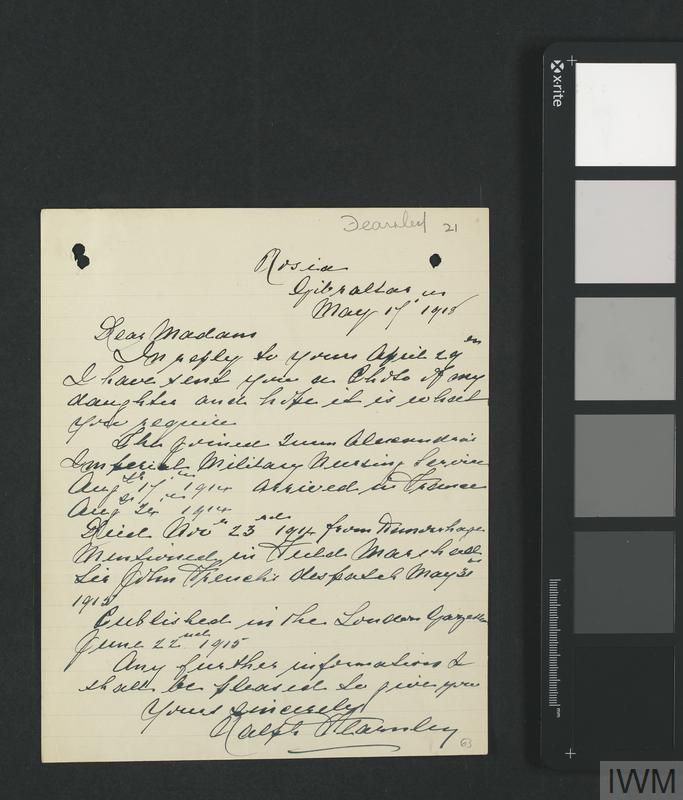 Fearnley 21
Rosia
Gibraltar
May 17th 1918
Dear Madam
In reply to yours April 29th
I have sent you a Photo of my
daughter and hope it is what
you require
She joined Queen Alexandra's
Imperial Military Nursing Service
Augst 17th 1914 arrived in France
Augst 24th 1914
Died Novr 23rd 1914 from
Mentioned in Field Marshall
Sir John French's despatch May 31st
1915
Published in the London Gazette
June 22nd 1915
Any further information I
shall be pleased to give you
Yours sincerely
Ralph Fearnley
63
x-rite
mm
IWM